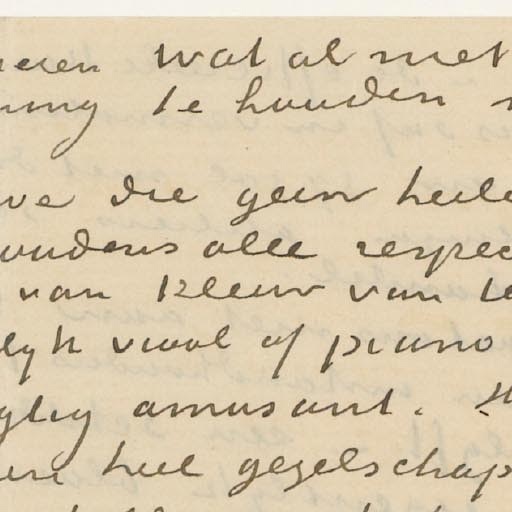 neren wat al met
ning te houden
ve die geen heele
oudens alle respec
van kleur van te
lyk viool of piano
glig amusant.
een heel gezelschap